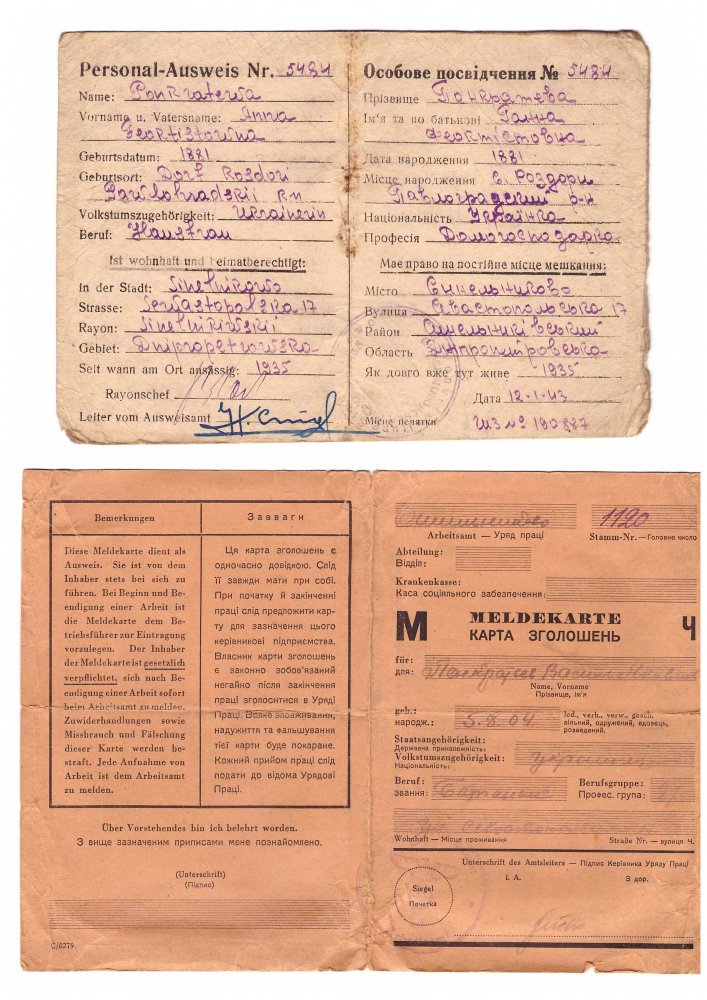 Personal-Ausweis Nr. 5484
Name: Ponkratewa
Vorname u. Vatersname: Anna
Feoktistowna
Geburtsdatum: 1881
Geburtsort: Dorf Rosdori
Pawlohradskii R-n
Volkstumszugehörigkeit: Ukrainerin
Beruf: Hausfrau
Ist wohnhaft und heimatberechtigt:
in der Stadt: Sinelnikowo
Strasse: Sewastopolska 17
Rayon: Sinelnikiwskii
Gebiet: Dnipropetrowska
Seit wann am Ort ansässig: 1935
Rayonschef
Leiter vom Ausweisamt
Особове посвідчення № 5484
Прізвище Понкратева
Ім'я та по батькові Ганна
Феоктістовна
Дата народження 1881
Місце народження с. Роздори
Павлоградський р-н
Національність Українка
Професія Домогосподарка
Має право на постійне місце мешкання:
Місто Синельниково
Вулиця Севастопольська 17
Район Синельниківський
Область Дніпропетровська
Як довго вже тут живе 1935
Дата 12-1-43
Місце печатки УШЗ № 190887
Bemerkungen
Diese Meldekarte dient als
Ausweis. Sie ist von dem
Inhaber stets bei sich zu
führen. Bei Beginn und Be-
endigung einer Arbeit ist
die Meldekarte dem Be-
triebsführer zur Eintragung
vorzulegen. Der Inhaber
der Meldekarte ist gesetzlich
verpflichtet, sich nach Be-
endigung einer Arbeit sofort
beim Arbeitsamt zu melden.
Zuwiderhandlungen sowie
Missbrauch und Fälschung
dieser Karte werden be-
straft. Jede Aufnahme von
Arbeit ist dem Arbeitsamt
zu melden.
Завваги
Ця карта зголошень є
одночасно довідкою. Слід
її завжди мати при собі.
При початку й закінченні
праці слід предложити кар-
ту для зазначення цього
керівникові підприємства.
Власник карти зголошень
є законно зобов'язаний
негайно після закінчення
праці зголоситися в Уряді
Праці. Всяке зловживання,
надужиття та фальшування
тієї карти буде покаране.
Кожний прийом праці слід
подати до відома Урядові
Праці.
Über Vorstehendes bin ich belehrt worden.
З вище зазначеним приписами мене познайомлено.
(Unterschrift)
(Підпис)
C/0279
1120
Arbeitsamt — Уряд праці
Stamm-Nr. — Головне число
Abteilung:
Відділ:
Krankenkasse:
Каса соціяльного забезпечення:
М MELDEKARTE Ч
КАРТА ЗГОЛОШЕНЬ
für:
для:
Name, Vorname
Прізвище, ім'я
geb.:
народж.: 5.8.04
led., verh., verw., gesch.
вільний, одружений, вдовець,
розведений.
Staatsangehörigkeit:
Державна приналежність:
Volkstumszugehörigkeit:
Національність:
Beruf:
звання:
Berufsgruppe:
Профес. група:
Wohnhaft — Місце проживання
Straße Nr. — вулиця Ч.
Unterschrift des Amtsleiters — Підпис Керівника Уряду Праці
i. A.
З дор.
Siegel
Печатка